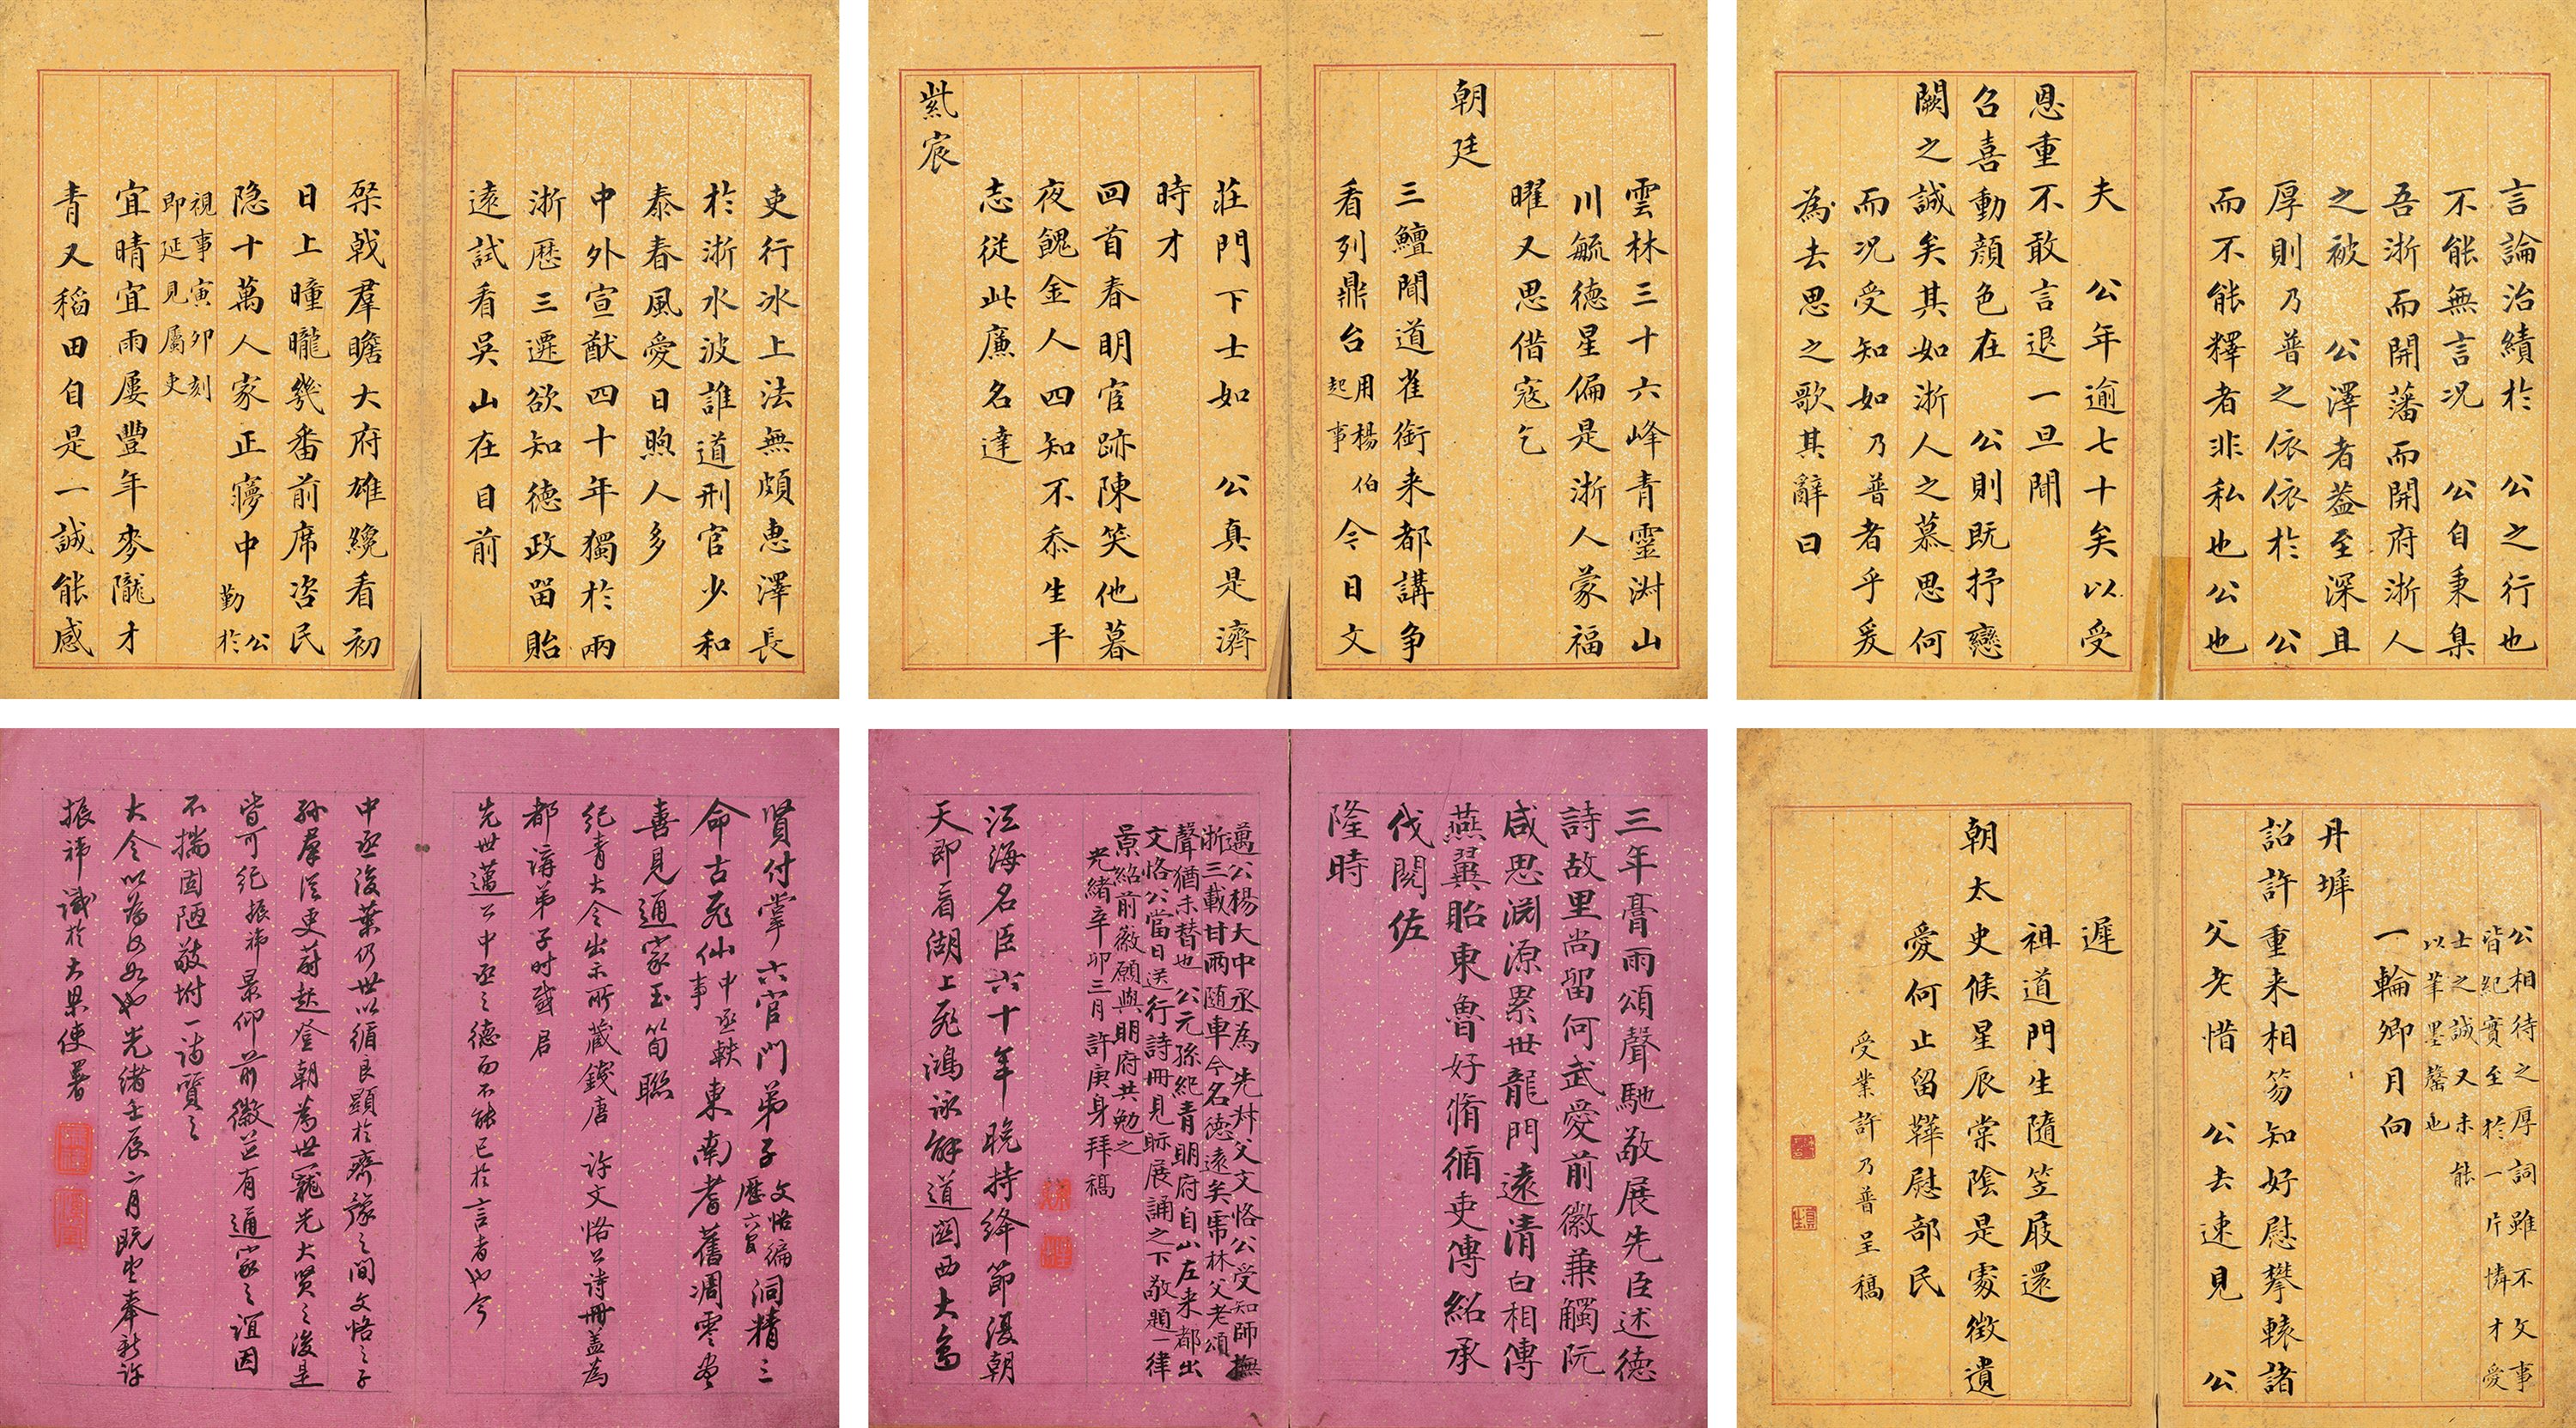 言論治績於　公之行也
不能無言况　公自秉臬
吾浙而開藩而開府浙人
之被　公澤者葢至深且
厚則乃普之依依於　公
而不能釋者非私也公也
夫　公年逾七十矣以受
恩重不敢言退一旦聞
召喜動顔色在　公則既抒戀
闕之誠矣其如浙人之慕思何
而况受知如乃普者乎爰
為去思之歌其辭曰
雲林三十六峰青靈淋山
川毓德星偏是浙人蒙福
曜又思借寇乞
朝廷
三鱣聞道雀銜来都講争
看列鼎台用楊伯起事今日文
莊門下士如　公真是濟
時才
回首春明宦跡陳笑他暮
夜餽金人四知不忝生平
志從此廉名達
紫宸
吏行冰上法無頗惠澤長
於浙水波誰道刑官少和
泰春風愛日煦人多
中外宣猷四十年獨於兩
浙歴三遷欲知德政留貽
遠試看吳山在目前
棨戟羣瞻大府雄纔看初
日上瞳曨幾番前席咨民
隐十萬人家正夢中公勤於
視事寅卯刻即延見屬吏
宜晴宜雨屢豐年麥隴才
青又稻田自是一誠能感
公相待之厚詞雖不文事
皆紀實至於一片憐才愛
士之誠又未能
以筆墨罄也
一輪卿月向
丹墀
詔許重来相笏知好慰攀轅諸
父老惜　公去速見　公
遲
祖道門生隨笠屐還
朝太史候星辰棠陰是處徵遺
愛何止留鞾慰部民
受業許乃普呈稿
三年膏雨頌聲馳敬展先臣述德
詩故里尚留何武愛前徽兼觸阮
咸思淵源累世龍門遠清白相傳
燕翼貽東魯好脩循吏傳紹承
伐閱佐
隆時
邁公楊大中丞為先叔父文恪公受知師撫
浙三載甘雨隨車今名德遠矣而林父老頌
聲猶未替也公元孫紀青明府自山左来都出
文恪公當日送行詩冊見眎展誦之下敬題一律
景紹前徽願與明府共勉之
光緒辛卯三月許庚身拜稿
江海名臣六十年晚持絳節復朝
天即看湖上飛鴻詠解道關西大鳥
賢付掌六官門弟子文恪徧歷六官洞精三
命古飛仙中丞軼事東南耆舊凋零盡
喜見通家玉筍聯
紀青大令出示所藏錢唐許文恪公詩冊盖為
都講弟子时感君
先世邁公中丞之德而不能已於言者也今
中丞後葉仍世以循良顯於齊豫之間文恪之子
孫羣從更蔚起登朝為世寵光大賢之後是
皆可紀振褘最仰前徽並有通家之誼因
不揣固陋敬坿一詩質之
大令以為何如也光緒壬辰六月既望奉新許
振褘識於大梁使署